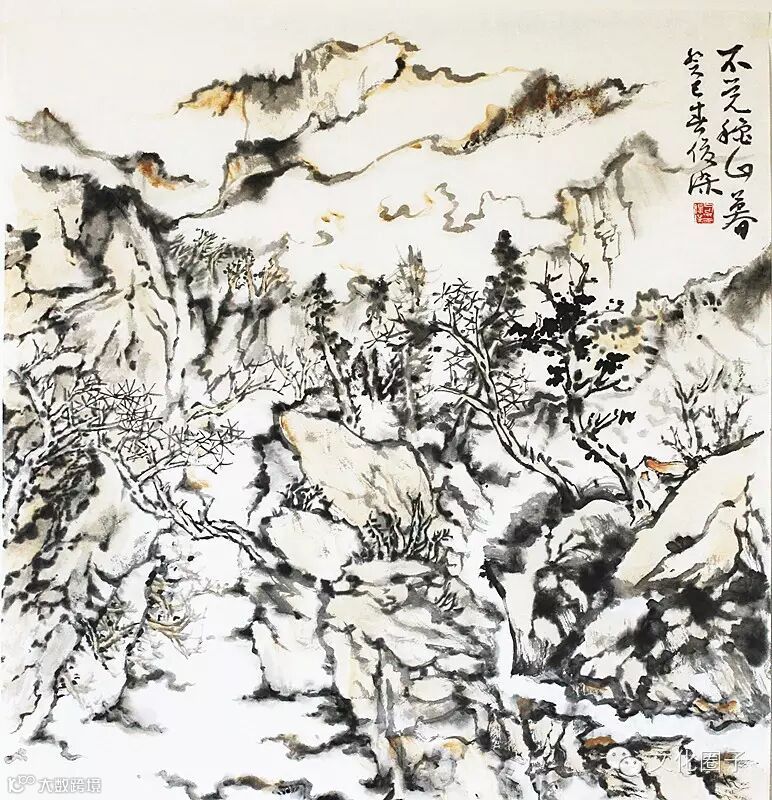 不觉碧山暮
癸巳春俊
文化圈子
大数跨境